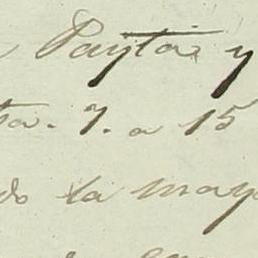 Payta y
ta. 7. a 15
do la may